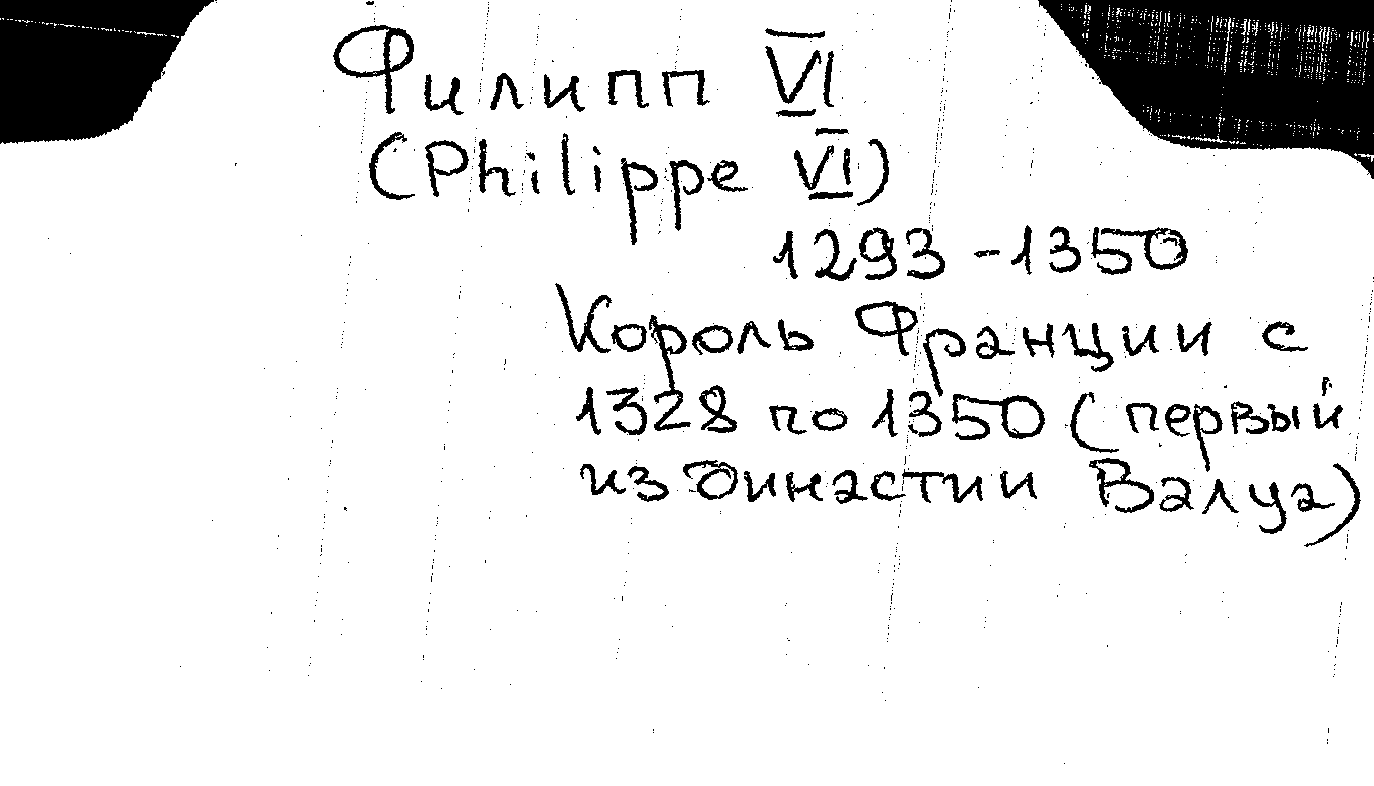 Филипп VI
(Philippe VI)
1293 - 1350
Король Франции с
1328 по 1350 (первый
из династии Валуа)